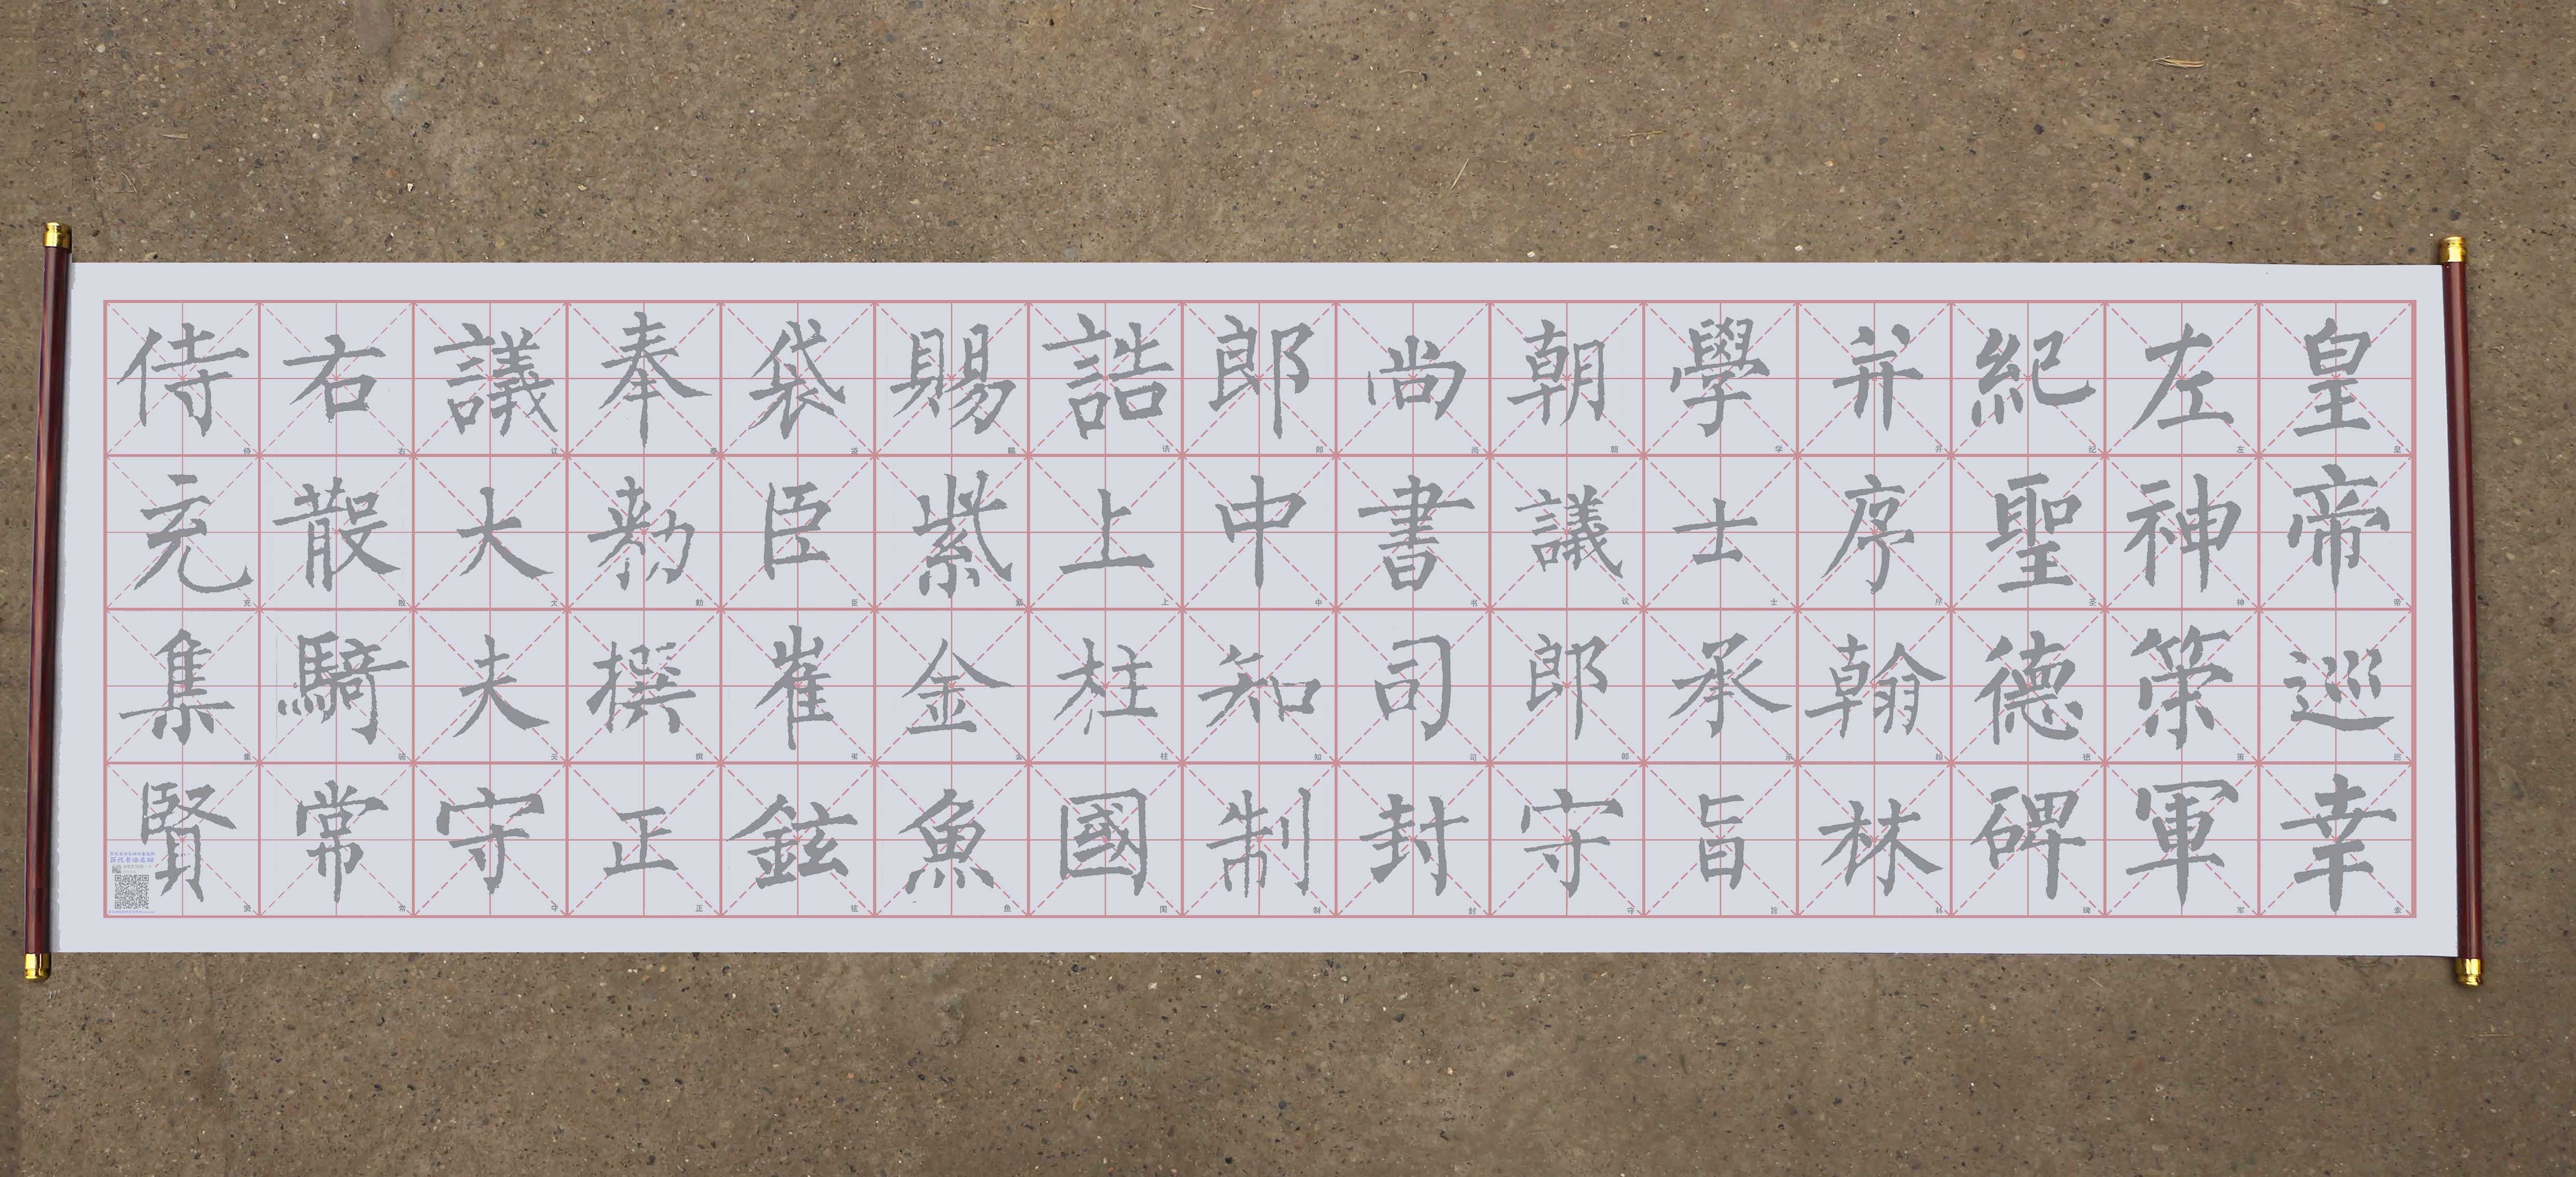 皇帝巡幸
左神策軍
紀聖德碑
并序翰林
學士承旨
朝議郎守
尚書司封
郎中知制
誥上柱國
賜紫金魚
袋臣崔鉉
奉勅撰正
議大夫守
右散騎常
侍充集賢